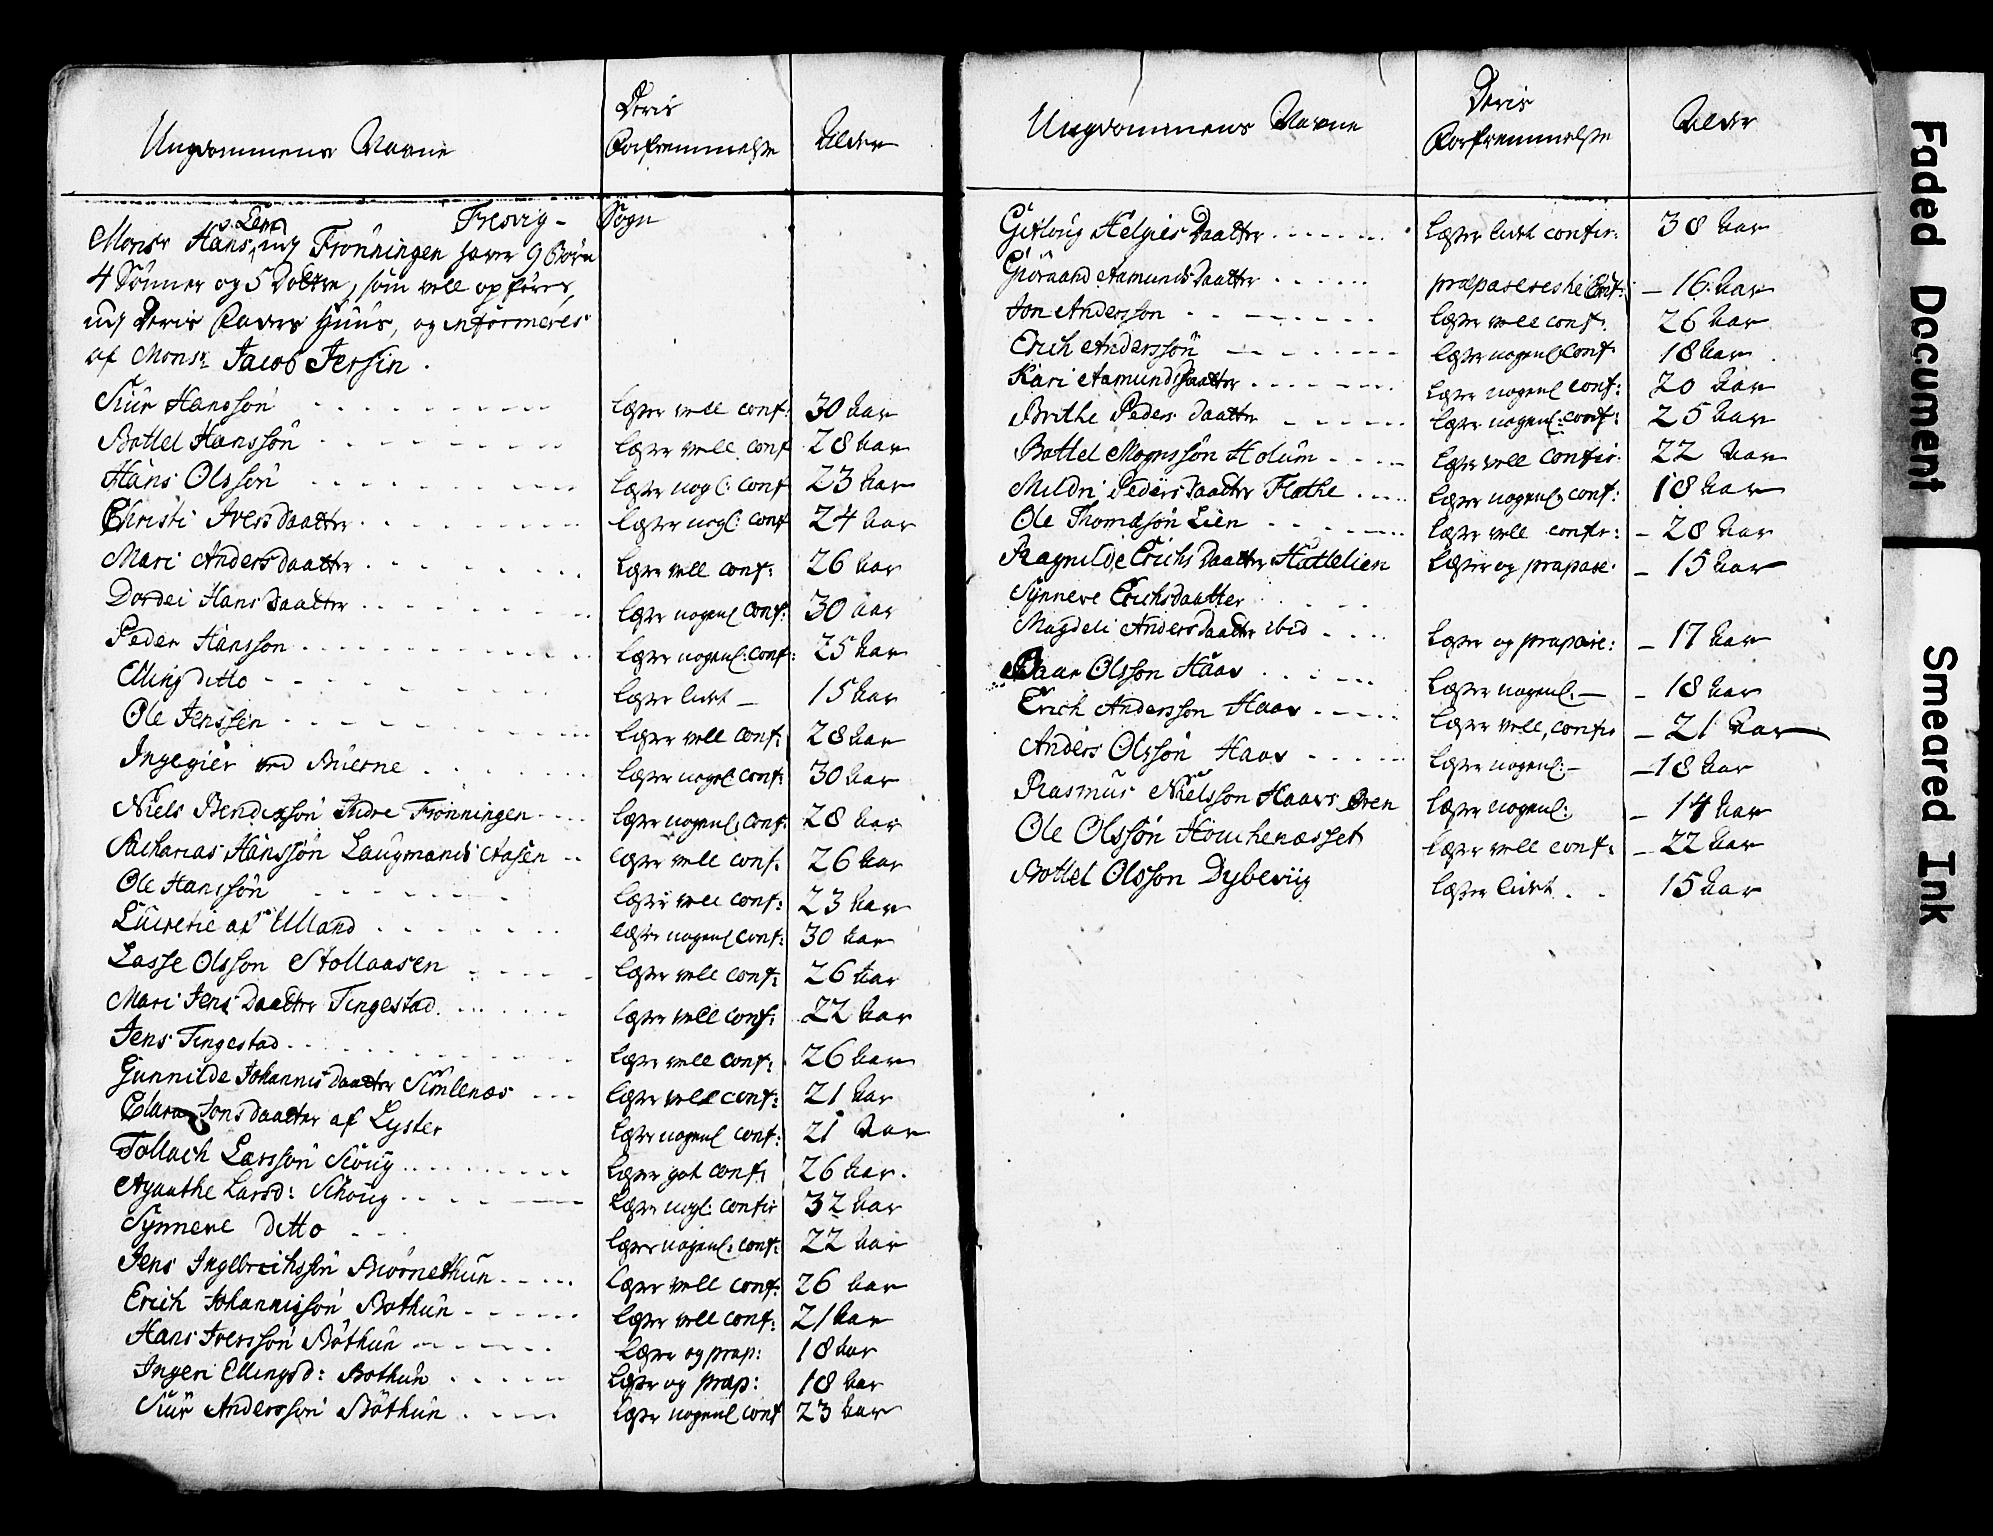 Ungdommens Navne | Deris Forfremmelse | Alder
Fresvig - Sogn
Monsr Hans s. Lem paa Frönningen haver 9 Börn
4 Sönner og 5 Döttre, som vell opföres,
udj Deris Faders Huus, og informeres
af Monsr: Jacob Jersin.
Siur Hansson | Læser vell conf: | 30 Aar
Bottel Hanssön | Læser vell conf | 28 Aar
Hans Olssön | Læser nogl: conf | 23 Aar
Christi Iversdaatter | Læser nogl: conf | 24 Aar
Mari Andersdaatter | Læser vell conf: | 26 Aar
Dordei Hansdaatter | Læser nogenl conf: | 30 aar
Peder Hansson | Læser nogenl: conf: | 25 Aar
Elling ditto | Læser lidet | 15 Aar
Ole Jenssen | Læser vell conf: | 28 Aar
Ingegier ved Büerne | Læser nogel: conf: | 30 Aar
Niels Bendixsön Indre Frönningen | Læser nogenl, conf: | 28 Aar
Zacharias Hanssön Laugmands Aasen | Læser vell conf: | 26 Aar
Ole Hanssön | Læser vell conf: | 23 Aar
Lucretie af Ulland | Læser nogenl conf: | 30 Aar
Lasse Olsson Stollaasen | Læser vell conf: | 26 Aar
Mari Jens Daatter Tingestad | Læser vell conf: | 22 Aar
Jens Tingestad | Læser vell conf: | 26 Aar
Gunnilde Johannis daatter Simlenæs | Læser vell conf: | 21 Aar
Clara Jonsdaatter af Lyster | Læser nogenl conf: | 21 Aar
Tollach Larsson Skoug | Læser got conf: | 26 Aar.
Agaathe Larsd: Schoug | Læser nogl: confir | 32 Aar
Synneve Ditto | Læser nogenl: conf: | 22 Aar
Jens Ingebrichssön Biörnethun | Læser vell conf: | 26 Aar
Erich Johannissön Bothun | Læser vell conf: | 21 Aar
Hans Iverssön Böthun | Læser og præp: | 18 Aar
Ingeri Ellingsd: Bothun | Læser og Præp: | 18 Aar
Siur Anderssön Böthun | Læser nogenl conf | 23 Aar
Ungdommens Navne | Deris Forfremmelse | Alder
Gitloug Helgies Daatter | Læser lidet confir: | 38 Aar
Giöraand Aamunds Daatter | præpareres | 16: Aar
Jon Andersson | Læser vell conf: | 26 Aar
Erich Anderssön | Læser nogenl conf: | 18 Aar
Kari Aamundsdaatter | Læser nogenl conf: | 20 Aar
Brithe Peders daatter | Læser nogenl: conf: | 25 Aar
Bottel Mognssön Holum | Læser vell Confir: | 22 Aar
Mildri Peders daatter Flathe | Læser nogenl, conf: | 18 Aar
Ole Thomæsön Lien | Læser vell confir: | 28 Aar
Ragnilde Erichs Daatter Hattelien | Læser og præpare: | 15 Aar
Synneve Erichsdaatter
Magdeli Andersdaatter ibid | Læser og præpare: | 17 Aar
Baar Olsson Haav | Læser nogenl: | 18 Aar
Erich Andersson Haav | Læser vell, confir | 21 Aar
Anders Olssön Haav | Læser nogenl: | 18 Aar
Rasmus Nielsson Haavs Oren | Læser nogenl: | 14 Aar
Ole Olssön Houchenæsset | Læser vell conf: | 22 Aar
Bottel Olsson Dybeviig | Læser lidet | 15 Aar
Faded Document
Smeared Ink